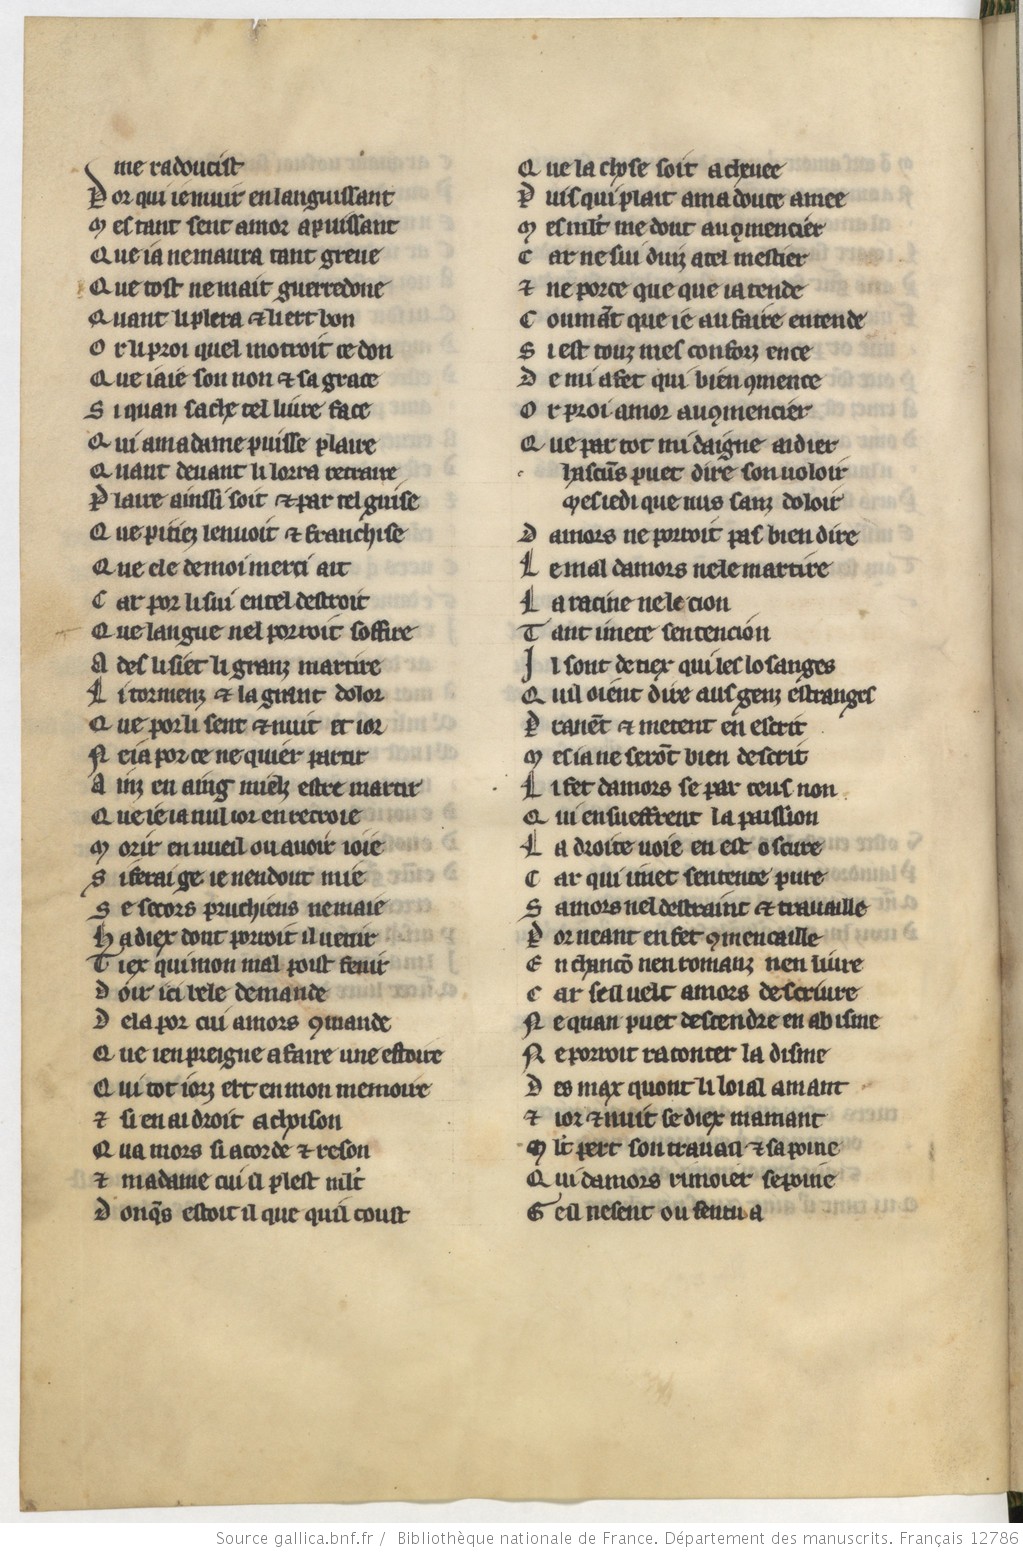 me radoucist
Por qui ie muir en languissant
Mes tant sent amor a puissant
Que ia ne maura tant greue
Que tost ne mait guerredone
Quant li plera & li ert bon
Or li proi quel motroit ce don
Que iaie son non & sa grace
Si quan sache tel liure face
Qui a ma dame puisse plaire
Quant deuant li lorra retraire
Plaire ainssi soit & par tel guise
Que pitiez lenuoit & franchise
Que ele de moi merci ait
Car por li sui en tel destroit
Que langue nel porroit soffire
A des li siet li granz martire
Li tormenz & la grant dolor
Que por li sent & nuit et ior
Ne ia por ce ne quier partir
Ainz en aing mielz estre martir
Que ie ia nul ior en recroie
Morir en vueil ou auoir ioie
Si ferai ge ie nen dout mie
Se secors pruchiens ne maie
Ha diex dont porroit il uenir
Tiex qui mon mal poist fenir
Dour ici bele demande
De la por cui amors ꝯmande
Que ien preigne a faire une estoire
Qui tot iorz ert en mon memoire
& si en ai droit achoison
Quamors si acorde & reson
& ma dame cui il plest mlt
Donqs estoit il que quil coust
Que la chose soit acheuee
Puis qui plait a ma douce amee
Mes mlt me dout au ꝯmencier
Car ne sui duiz a tel mestier
& ne porce que que ia tende
Coumat que ie au faire entende
Si est touz mes conforz en ce
De mi a fet qui bien ꝯmence
Or proi amor au ꝯmencier
Que par tot mi daigne aidier
hascuns puet dire son uoloir
Mes ie di que nus sanz doloir
Damors ne porroit pas bien dire
Le mal damors ne le martire
La racine ne le cion
Tant i mete sentencion
Il sont de tiex qui les losanges
Quil oient dire aus genz estranges
Pranent & metent en escrit
Mes ia ne seront bien descrit
Li fet damors se par ceus non
Qui en sueffrent la passion
La droite uoie en est oscure
Car qui i met sentence pure
Samors nel destraint & trauaille
Por neant en fet ꝯmencaille
En chanco nen romanz nen liure
Car sesl uelt amors descriure
Ne quan puet descendre en abisme
Ne porroit raconter la disme
Des max quont li loial amant
& ior & nuit se diex mamant
Mlt pert son trauail & sa poine
Qui damors rimoier se poine
Ceil nesent ou sentu a
Source gallica.bnf.fr / Bibliothèque nationale de France. Département des manuscrits. Français 12786